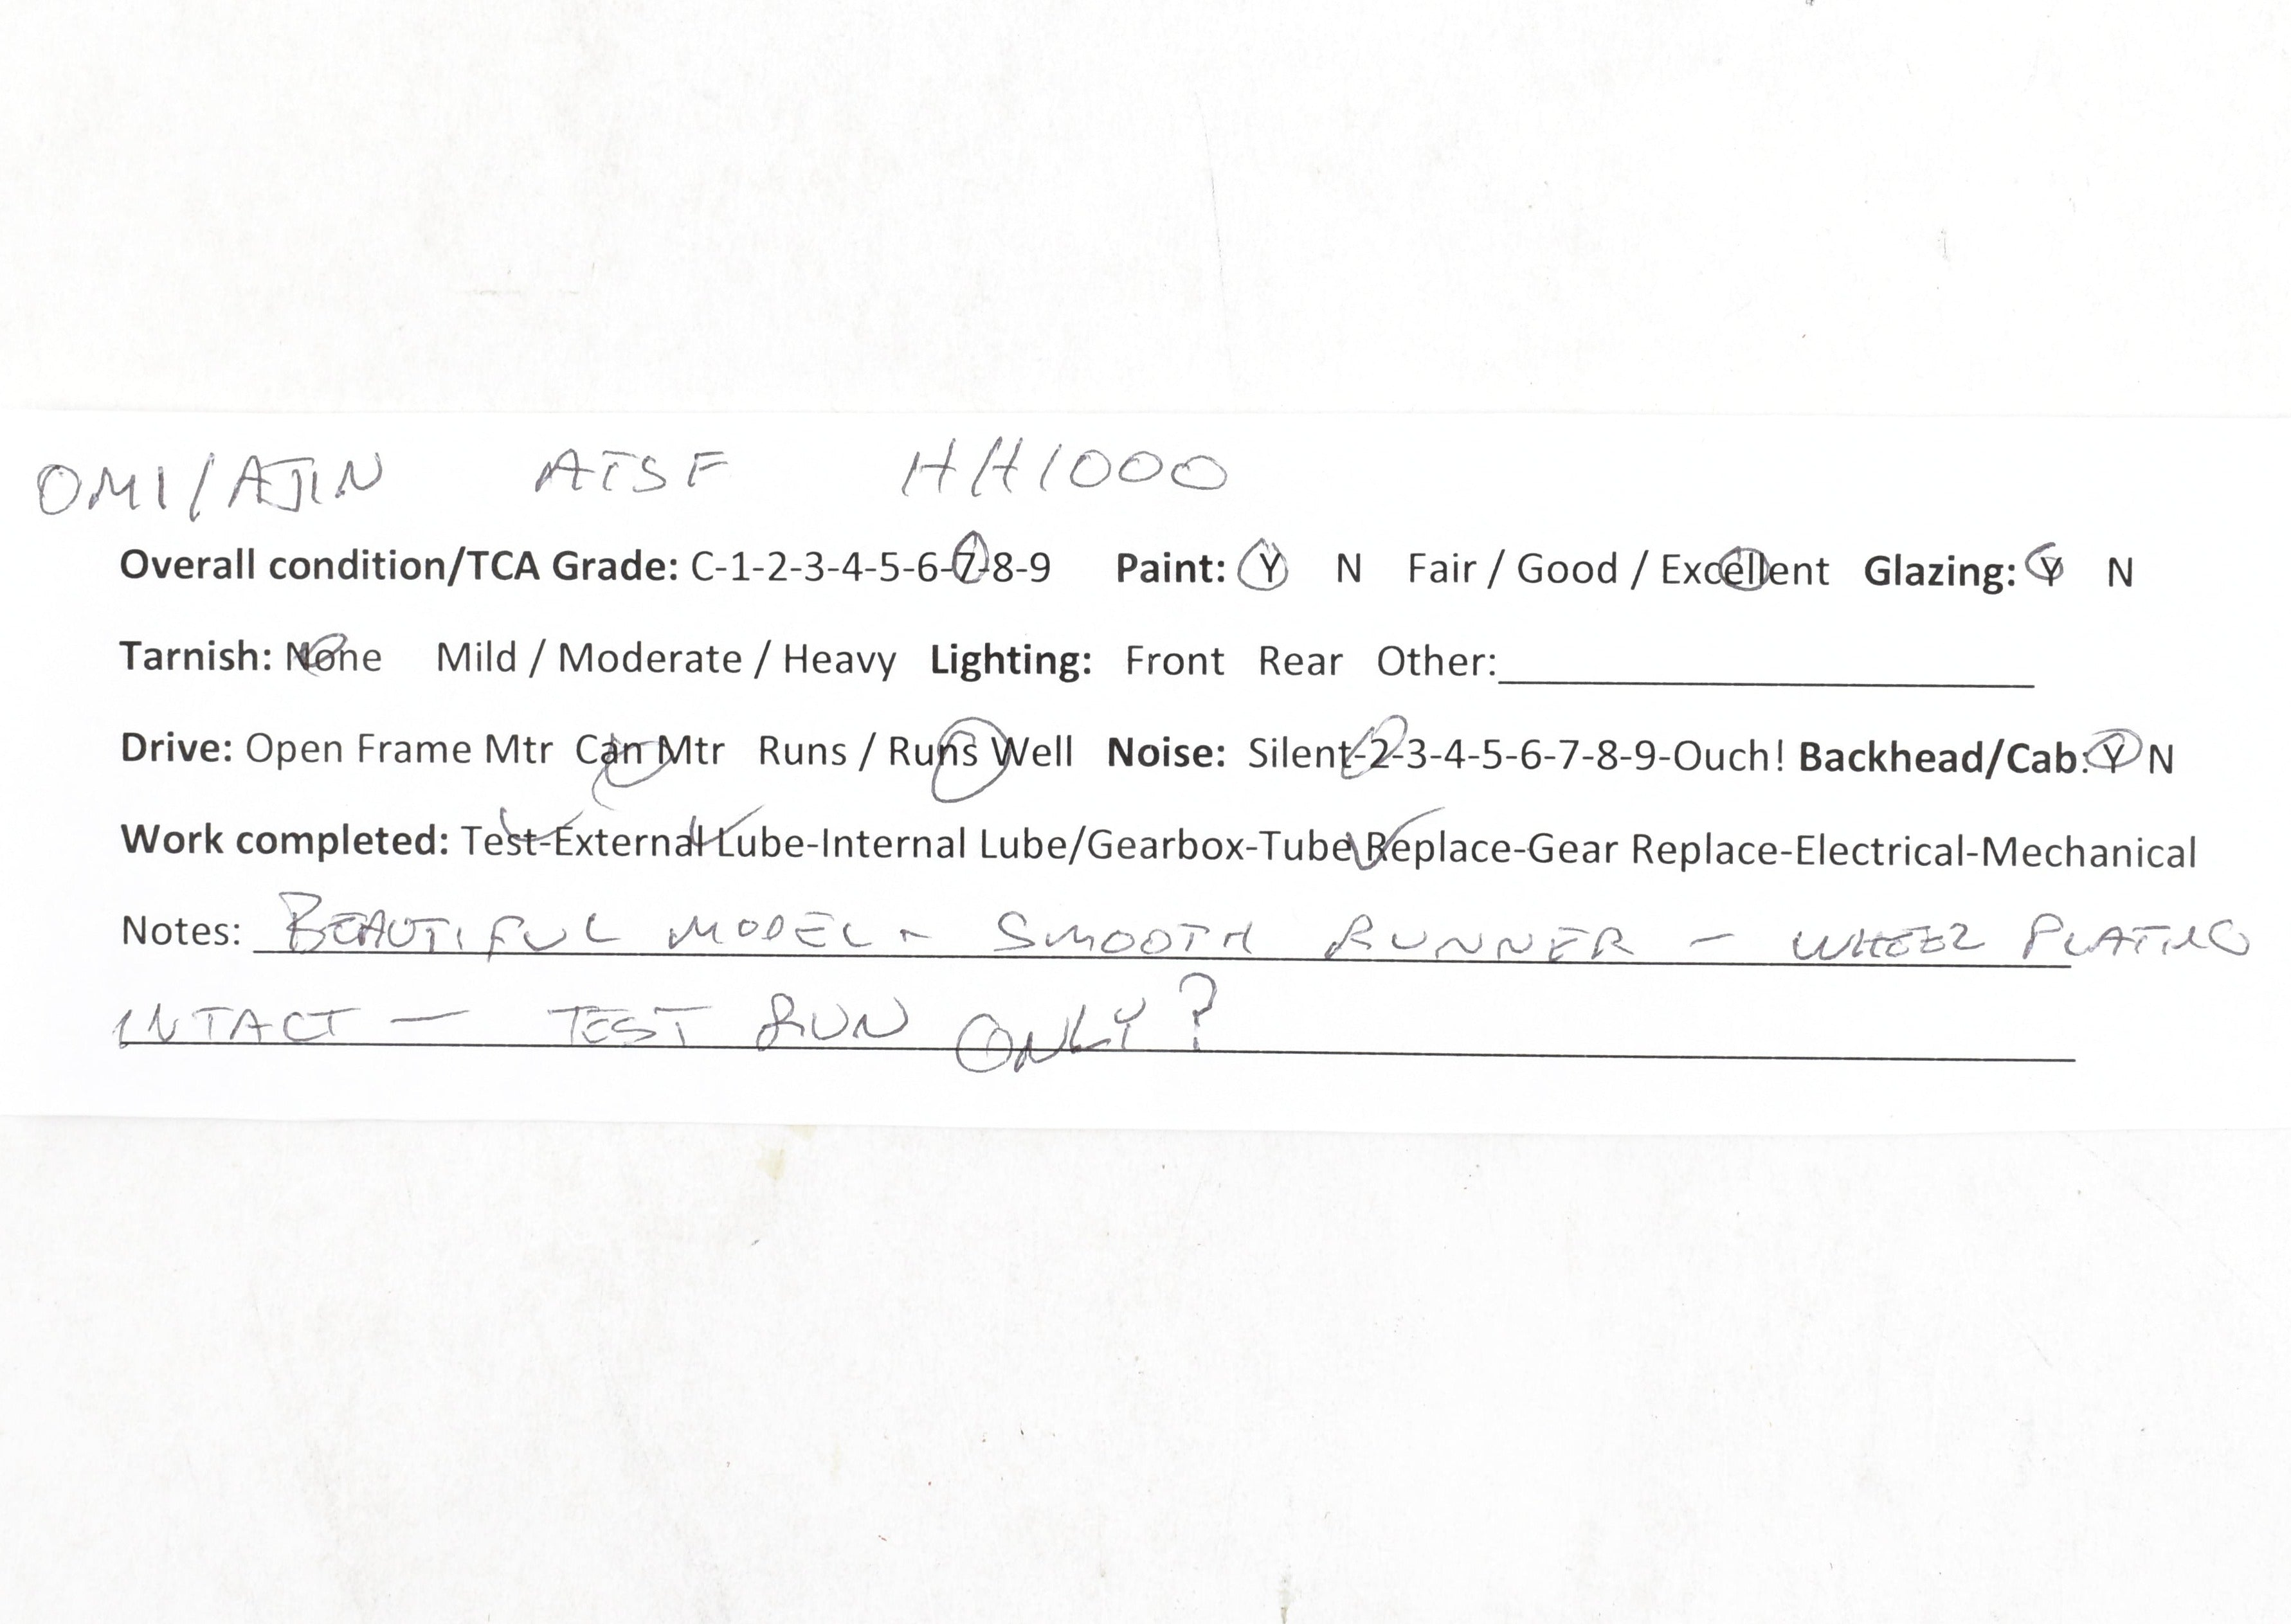 OMI/AJIN ATSF HH1000
Overall condition/TCA Grade: C-1-2-3-4-5-6-7-8-9 Paint: Y N Fair / Good / Excellent Glazing: Y N
Tarnish: None Mild / Moderate / Heavy Lighting: Front Rear Other:
Drive: Open Frame Mtr Can Mtr Runs / Runs Well Noise: Silent-2-3-4-5-6-7-8-9-Ouch! Backhead/Cab: Y N
Work completed: Test-External Lube-Internal Lube/Gearbox-Tube Replace-Gear Replace-Electrical-Mechanical
Notes: BEAUTIFUL MODEL - SMOOTH RUNNER - WHEEL PLATING
INTACT - TEST RUN ONLY?